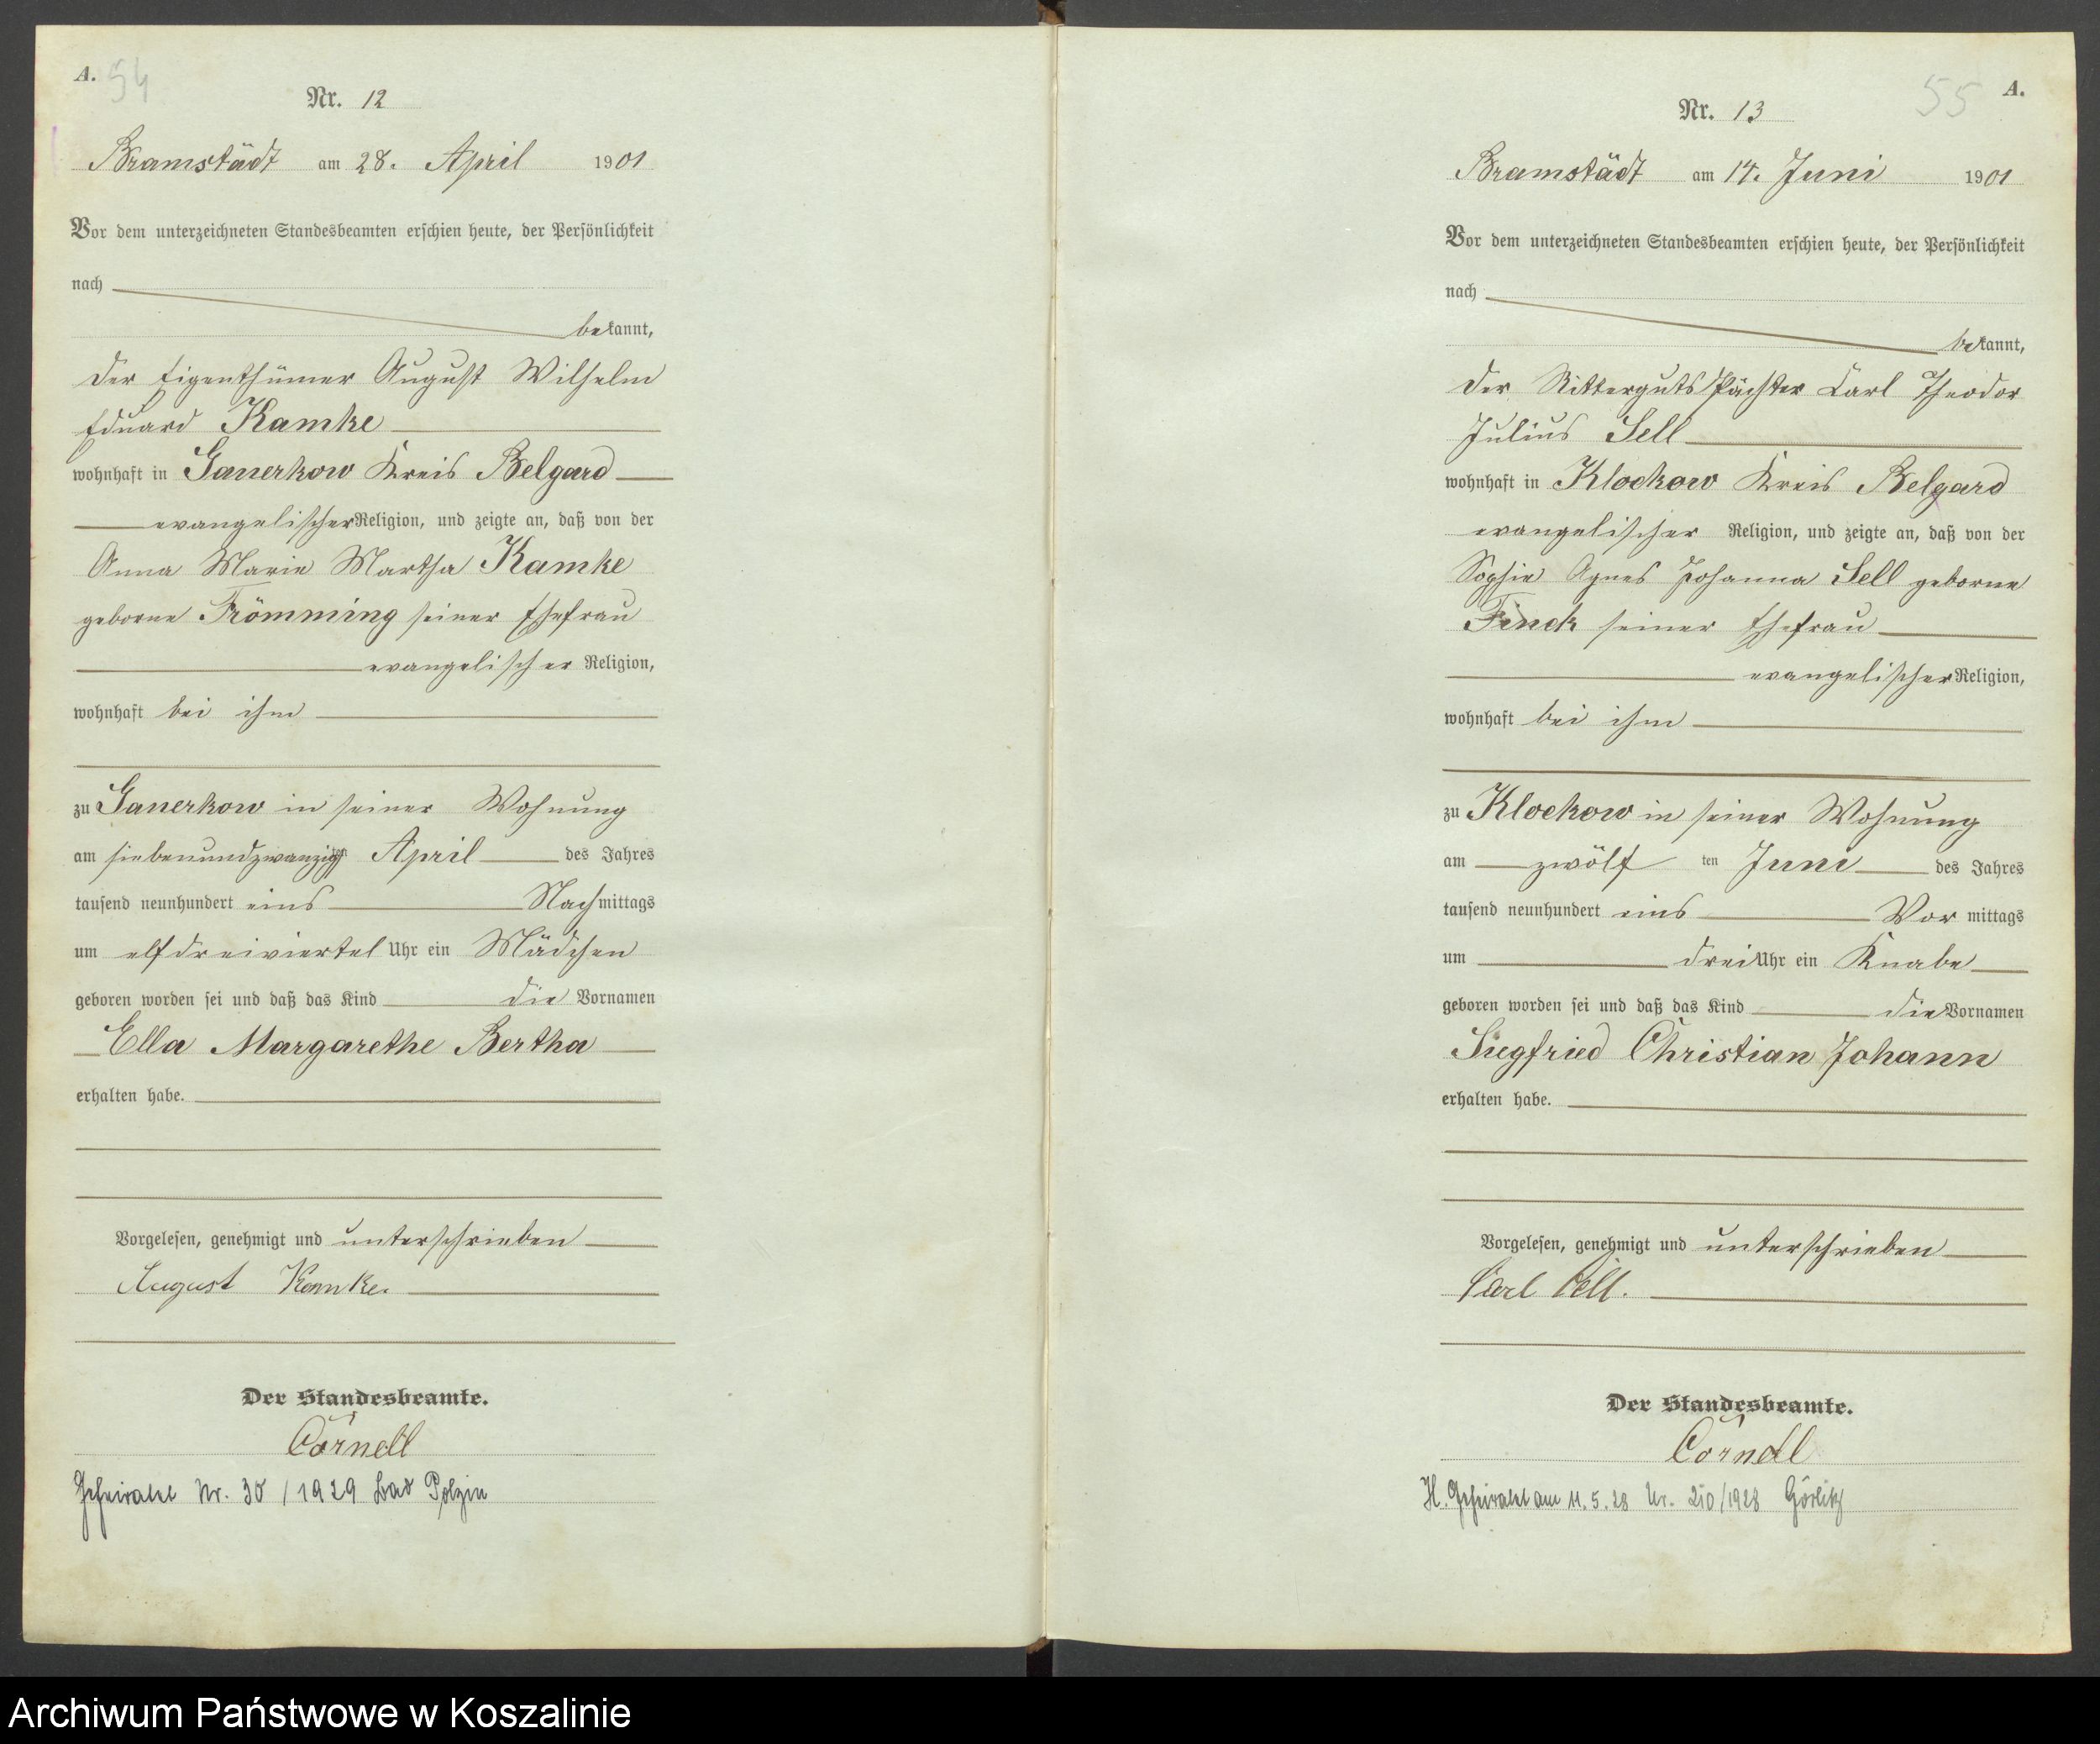 A. 54
Nr. 12
Bramstädt am 28. April 1901
Vor dem unterzeichneten Standesbeamten erschien heute, der Persönlichkeit
nach
bekannt,
der Eigenthümer August Wilhelm
Eduard Kamke
wohnhaft in Ganerkow Kreis Belgard
evangelischer Religion, und zeigte an, daß von der
Anna Marie Martha Kamke
geborne Frömming seiner Ehefrau
evangelischer Religion,
wohnhaft bei ihm
zu Ganerkow in seiner Wohnung
am siebenundzwanzigsten April des Jahres
tausend neunhundert eins Nachmittags
um elf dreiviertel Uhr ein Mädchen
geboren worden sei und daß das Kind die Vornamen
Ella Margarethe Bertha
erhalten habe.
Vorgelesen, genehmigt und unterschrieben
August Kamke.
Der Standesbeamte.
Cörnell
Geheiratet Nr. 30/1929 Bad Polzin
55 A.
Nr. 13
Bramstädt am 14. Juni 1901
Vor dem unterzeichneten Standesbeamten erschien heute, der Persönlichkeit
nach
bekannt,
der Ritterguts Pächter Carl Theodor
Julius Sell
wohnhaft in Klockow Kreis Belgard
evangelischer Religion, und zeigte an, daß von der
Sophie Agnes Johanna Sell geborne
Finck seiner Ehefrau
evangelischer Religion,
wohnhaft bei ihm
zu Klockow in seiner Wohnung
am zwölf ten Juni des Jahres
tausend neunhundert eins Vor mittags
um drei Uhr ein Knabe
geboren worden sei und daß das Kind die Vornamen
Siegfried Christian Johann
erhalten habe.
Vorgelesen, genehmigt und unterschrieben
Carl Sell.
Der Standesbeamte.
Cörnell
H. Geheiratet am 11.5.28 Nr. 210/1928 Görlitz
Archiwum Państwowe w Koszalinie